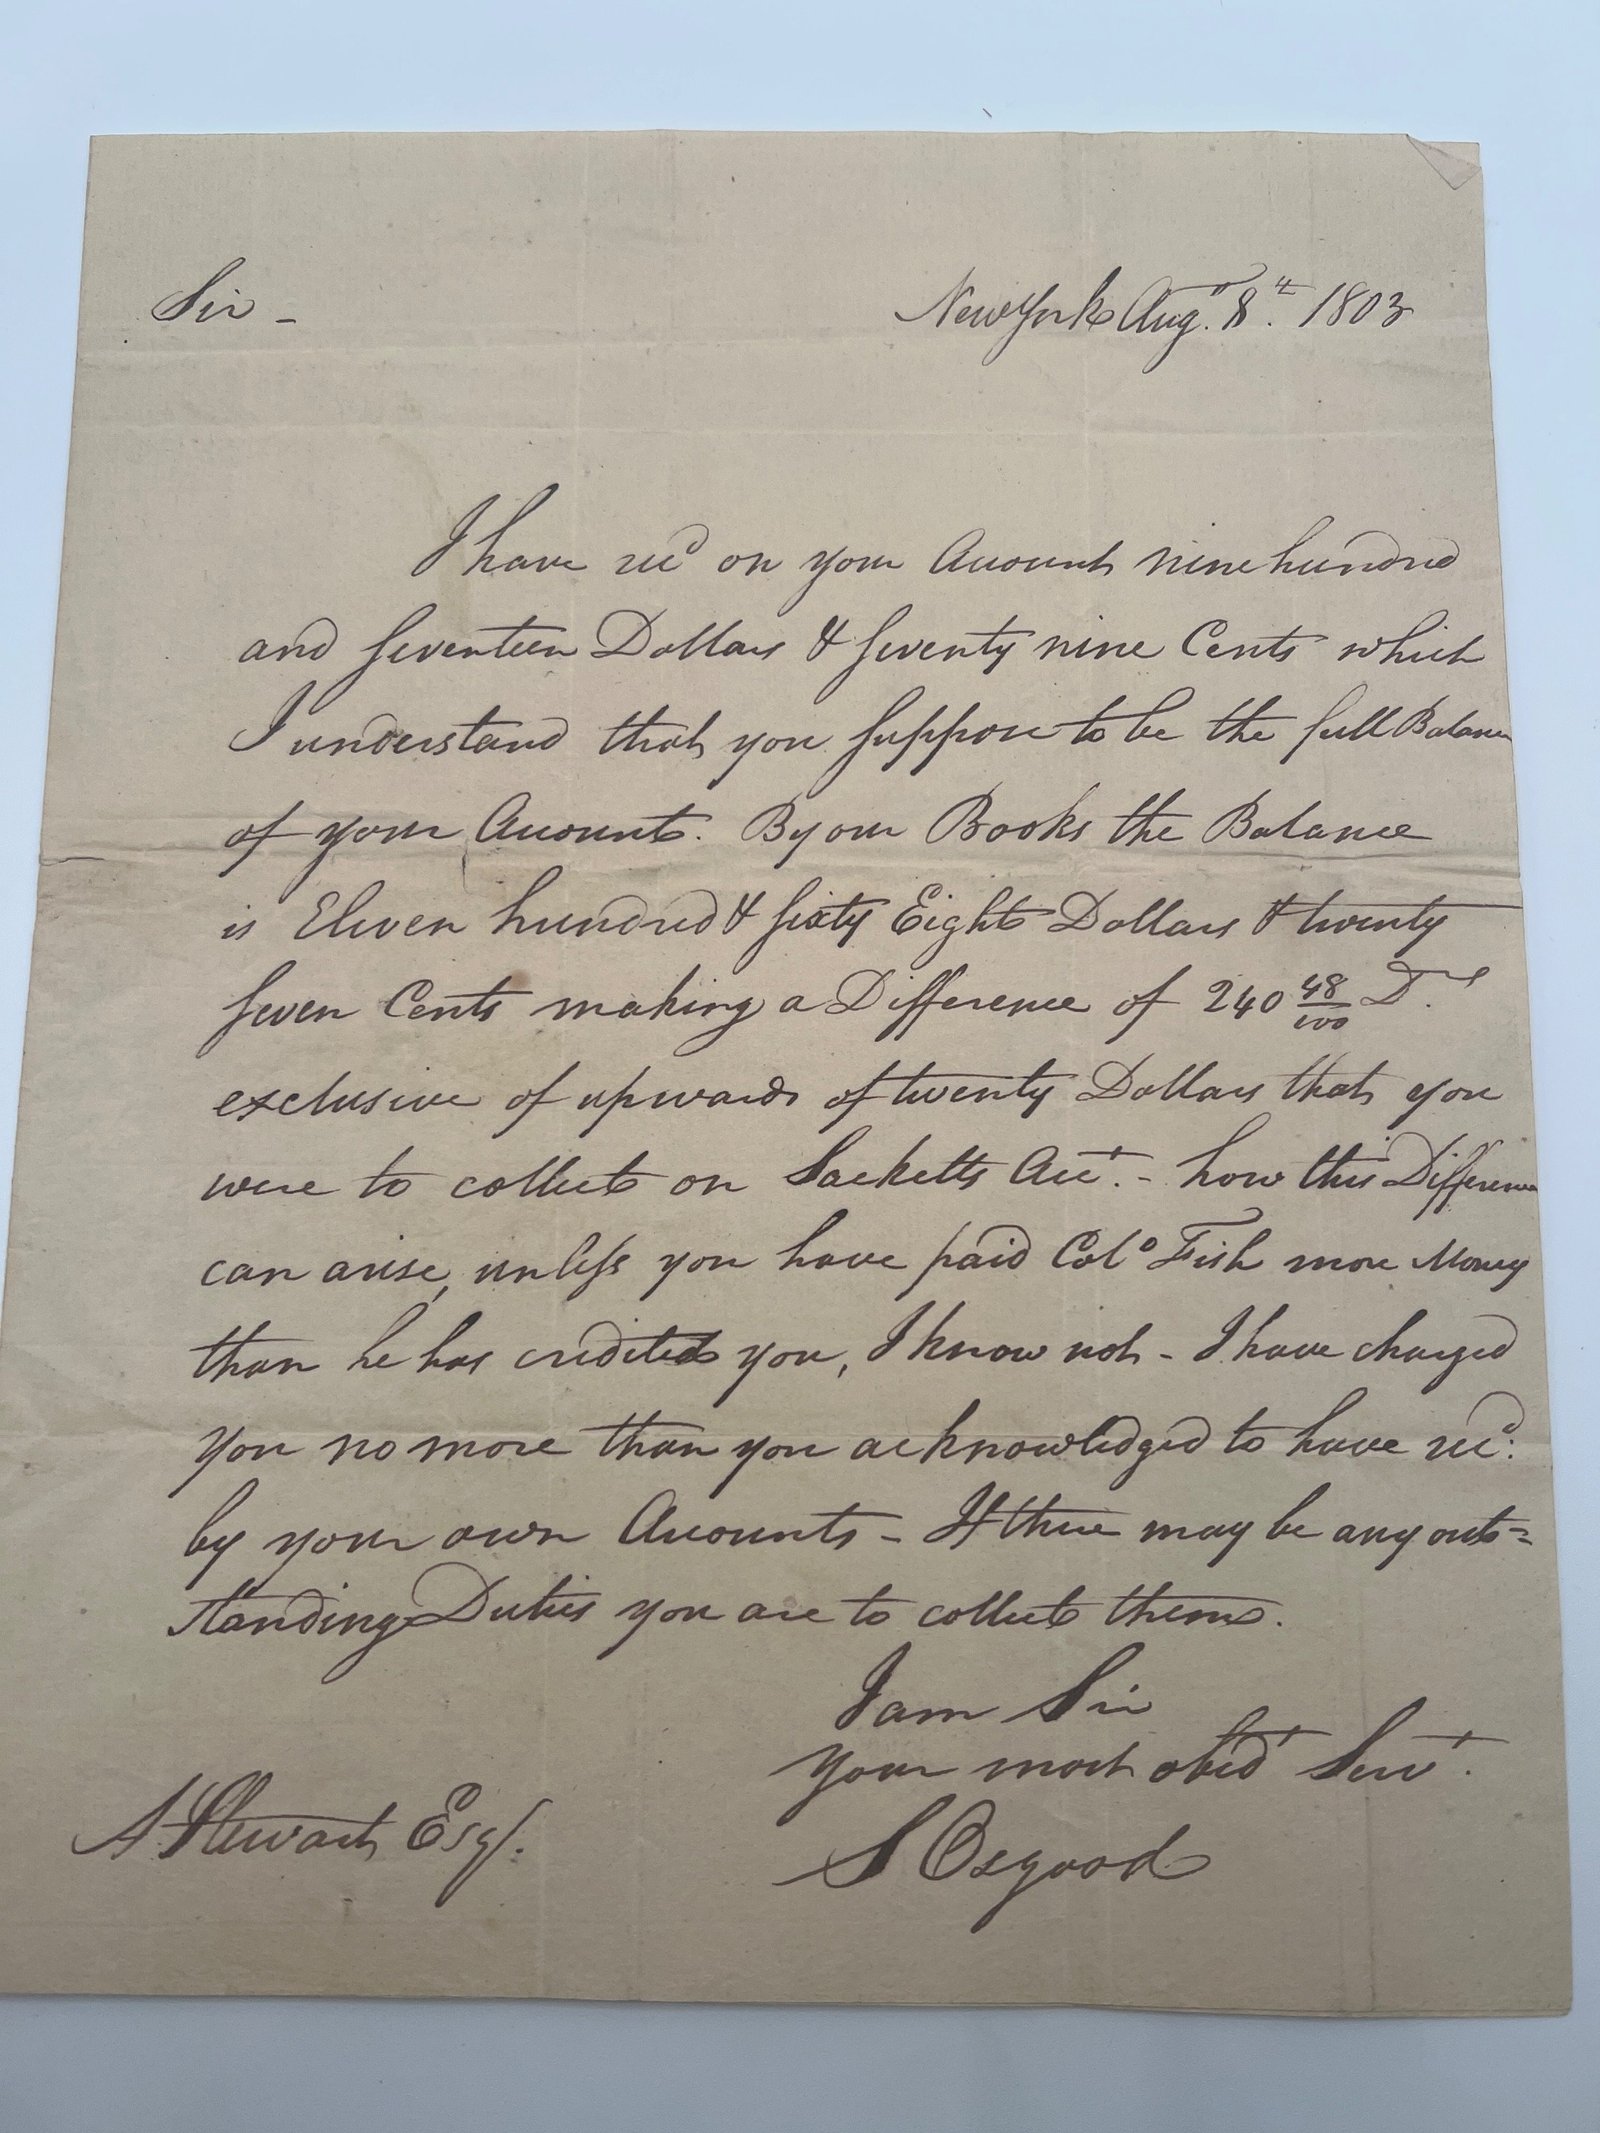 Sir - New York Augt. 8th. 1803
I have recd on your Account nine hundred
and seventeen Dollars & seventy nine Cents which
I understand that you suppose to be the full Balance
of your Account. By our Books the Balance
is Eleven hundred & sixty Eight Dollars & twenty
seven Cents making a Difference of 240 48/100 D.rs
exclusive of upwards of twenty Dollars that you
were to collect on Sacketts Acct. - how this Difference
can arise, unless you have paid Colo Fish more Money
than he has credited you, I know not - I have charged
you no more than you acknowledged to have recd:
by your own Accounts - If there may be any out=
standing Duties you are to collect them.
I am Sir
your most obedt Servt.
S Osgood
A Stewart Esqr.